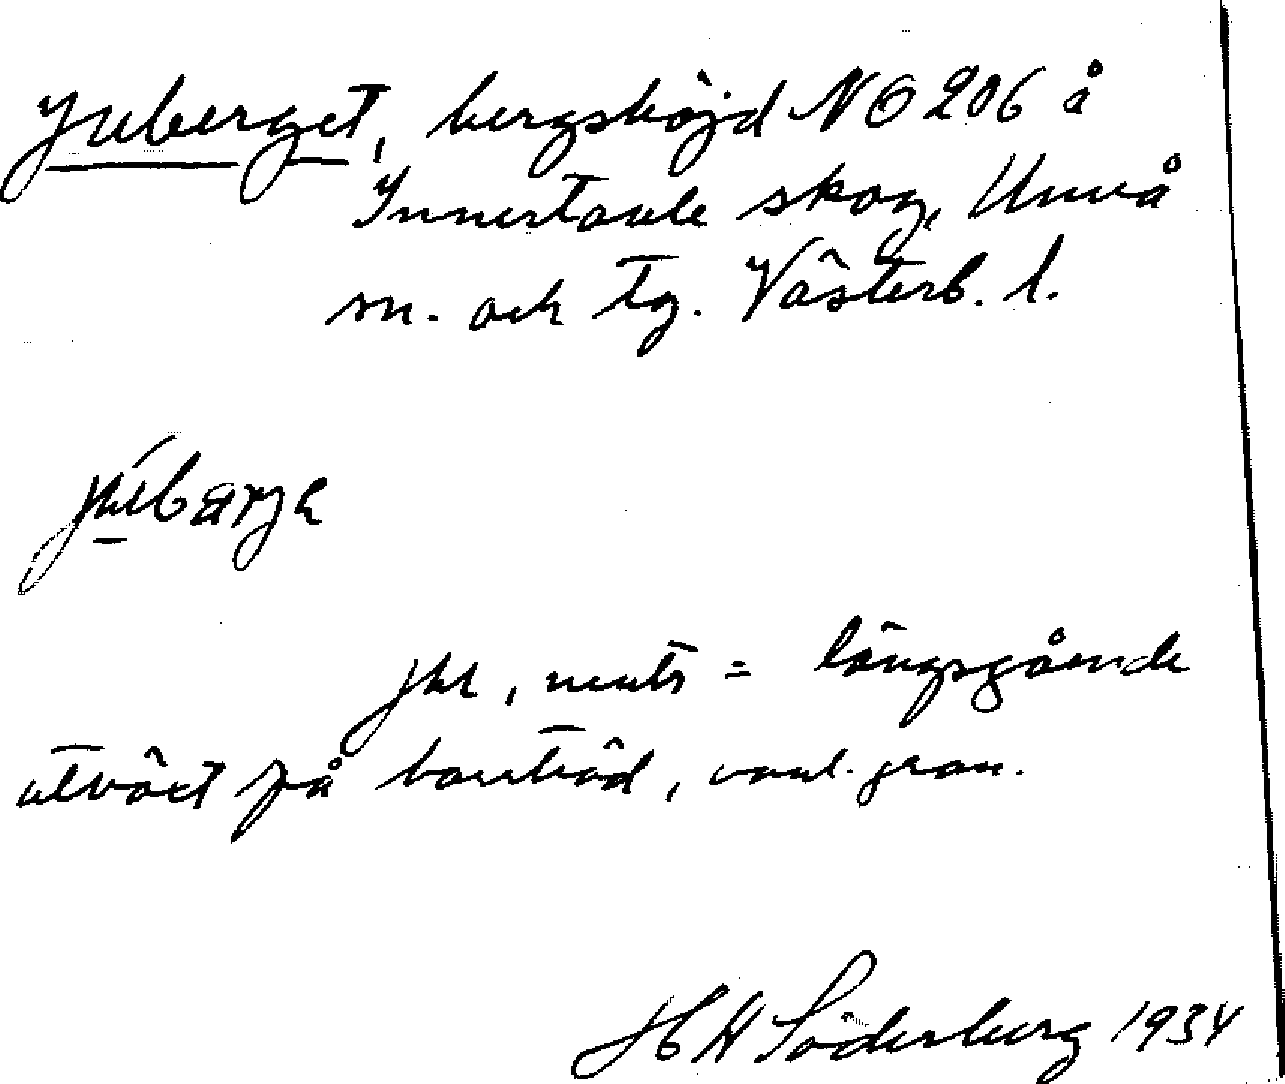 Juberget, bergshöjd NO 206 å
Innertavle skog, Umeå
sn. och tg. Västerb. l.
jʉbærjə
jʉ, neutr = längsgående
utväxt på barrträd, vanl. gran.
J H Söderberg 1934